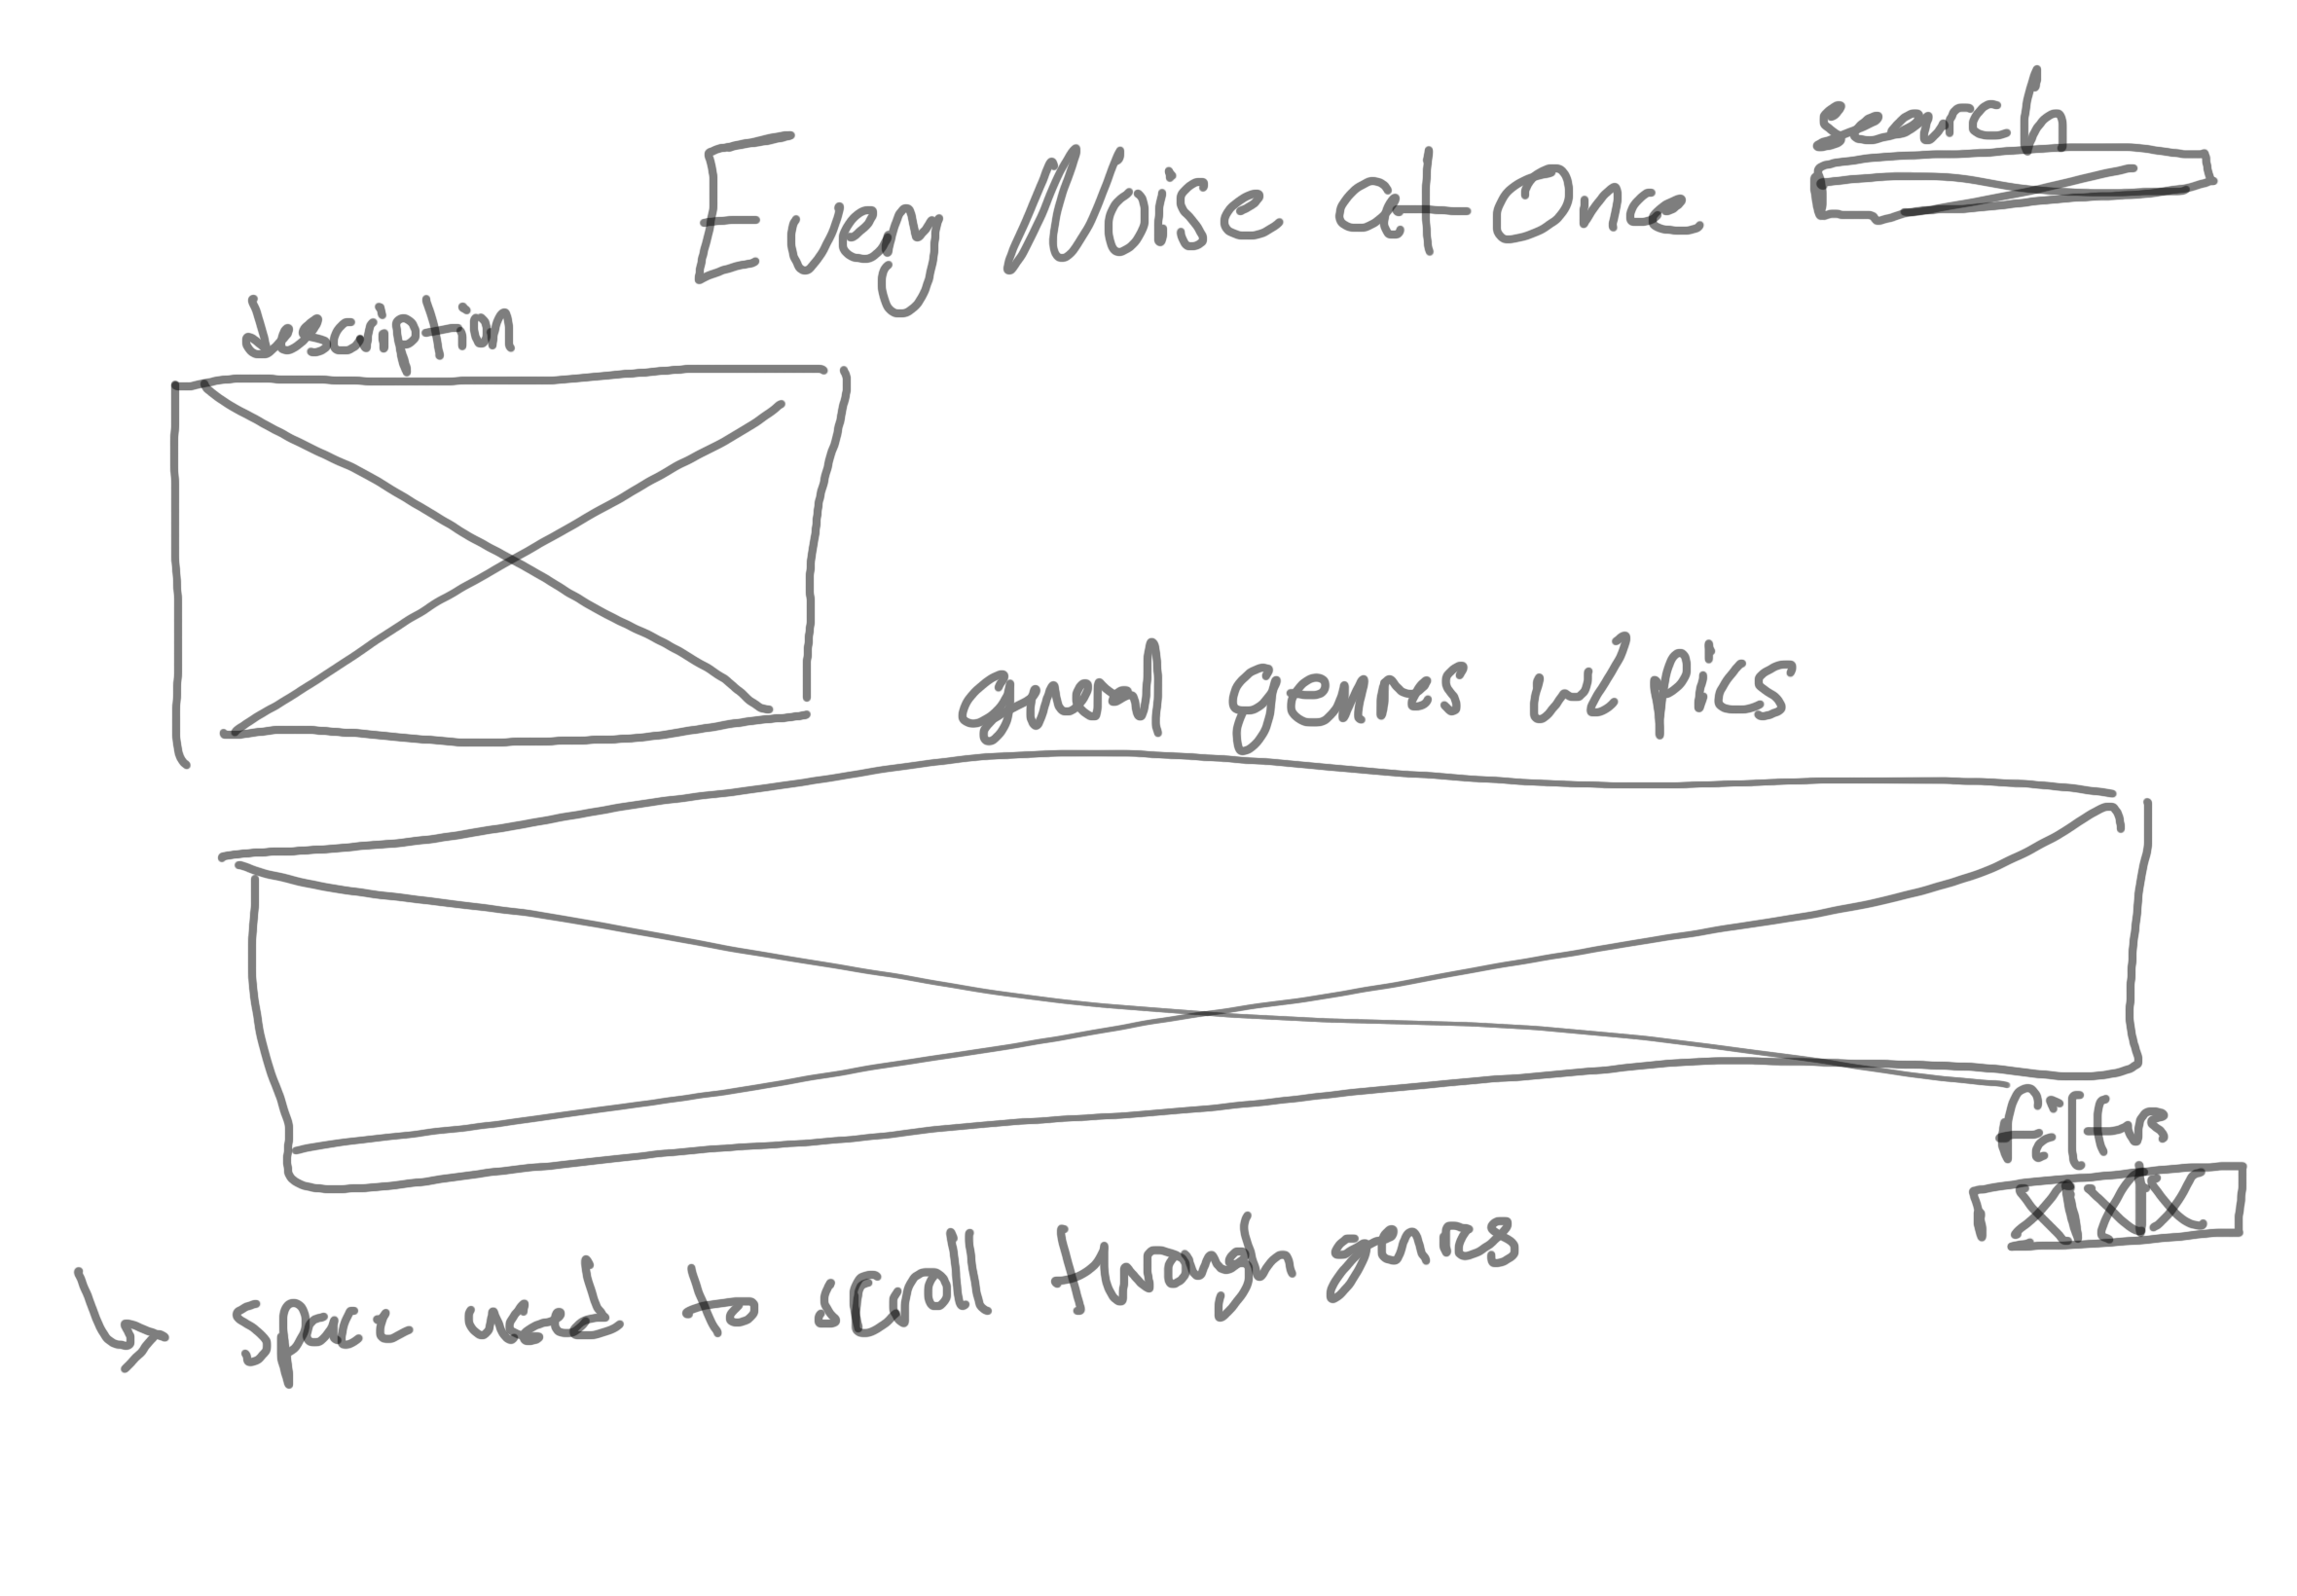 Every Noise at Once
search
description
genres w/ pics
Filters
↳ space used to scroll through genres